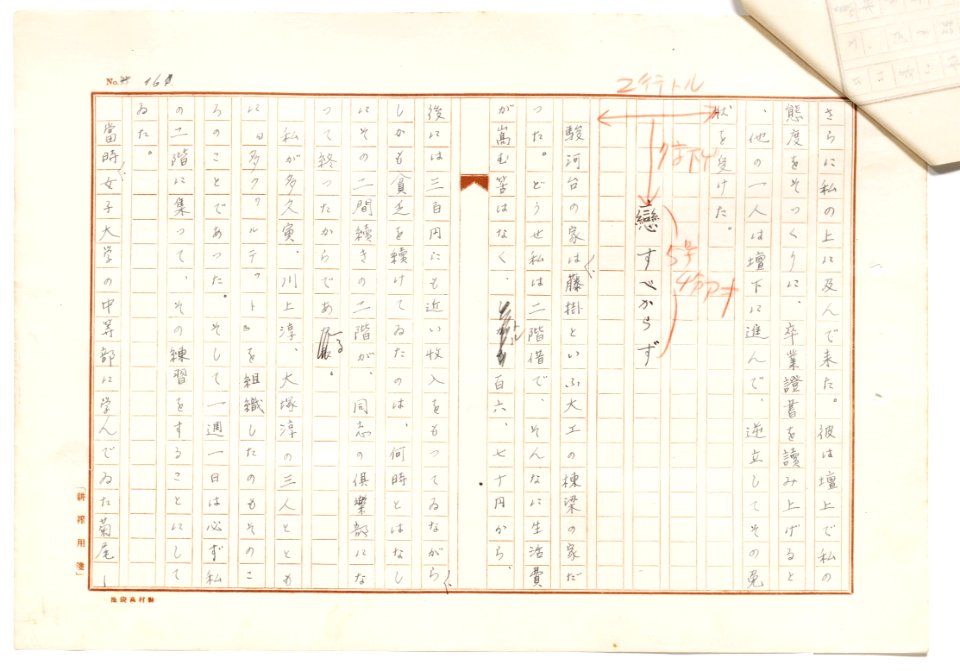 No. 161
2行ドル
さらに私の上に及んで来た。彼は壇上で私の
態度をそつくりに、卒業證書を讀み上げると
、他の一人は壇下に進んで、逆立してその免
状を受けた。
戀すべからず
5号
4分アキ
駿河台の家は藤掛といふ大工の棟梁の家だ
つた。どうせ私は二階借で、そんなに生活費
が嵩む筈はなく、百六、七十円から、
後には三百円にも近い收入をもつてゐながら
しかも貧乏を續けてゐたのは、何時とはなし
にその二間續きの二階が、同志の倶樂部にな
つて終つたからである。
私が多久寅、川上淳、大塚淳の三人ととも
に多久クルテツトを組織したのもそのこ
ろのことであつた。そして一週一日は必ず私
の二階に集つて、その練習をすることにして
ゐた。
當時女子大学の中等部に学んでゐた菊尾